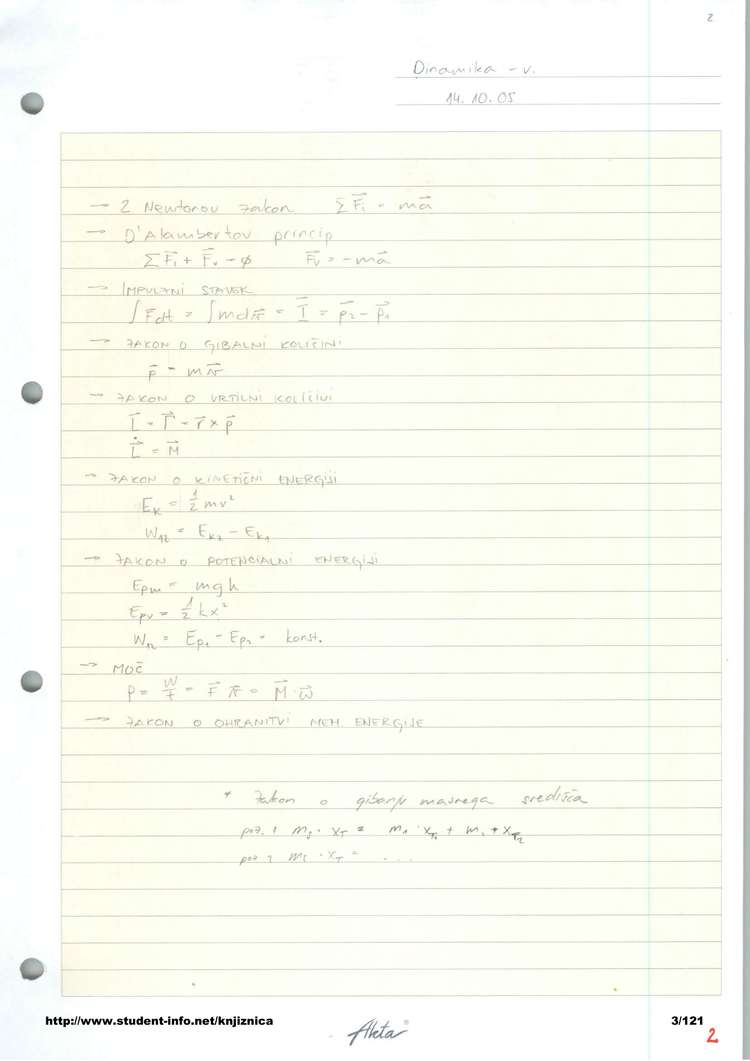 2
Dinamika - v.
14. 10. 05
→ 2 Newtonov zakon ∑F⃗i = ma⃗
→ D'Alambertov princip
∑F⃗i + F⃗v = ϕ F⃗v = -ma⃗
→ IMPULZNI STAVEK
∫F⃗dt = ∫mdv⃗ = I⃗ = p⃗2 - p⃗1
→ ZAKON O GIBALNI KOLIČINI
p⃗ = mv⃗
→ ZAKON O VRTILNI KOLIČINI
L⃗ = Γ⃗ = r⃗ × p⃗
L⃗̇ = M⃗
→ ZAKON O KINETIČNI ENERGIJI
EK = 1/2 mv²
W12 = EK2 - EK1
→ ZAKON O POTENCIALNI ENERGIJI
Epm = mgh
Epv = 1/2 kx²
W12 = Ep1 - Ep2 = konst.
→ MOČ
P = W/t = F⃗ v⃗ = M⃗ · ω⃗
→ ZAKON O OHRANITVI MEH. ENERGIJE
* Zakon o gibanju masnega središča
poz. 1 ms · xT = m1 · xT1 + m2 + xT2
poz 2 · xT = ...
http://www.student-info.net/knjiznica
Aleta
3/121
2